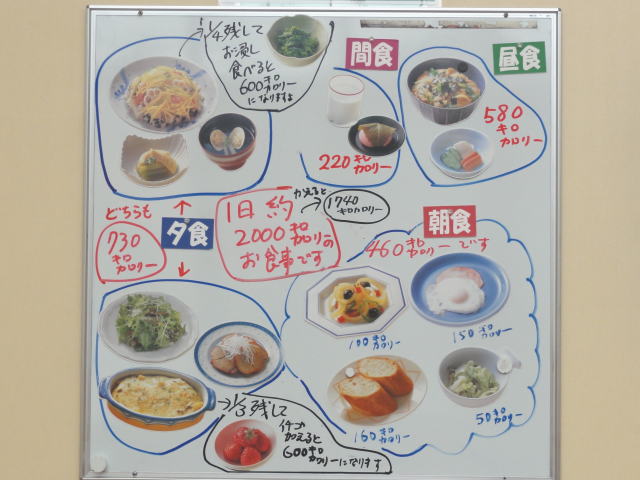 1/4残して
お浸し
食べると
600キロカロリー
になりますよ
間食
220キロカロリー
昼食
580
キロ
カロリー
どちらも
730
キロ
カロリー
夕食
1日約
2000キロカロリーの
お食事です
かえると
1740
キロカロリー
朝食
460キロカロリーです
100キロカロリー
150キロカロリー
160キロカロリー
50キロ
カロリー
1/3残して
イチゴ
加えると
600キロカロリーになります